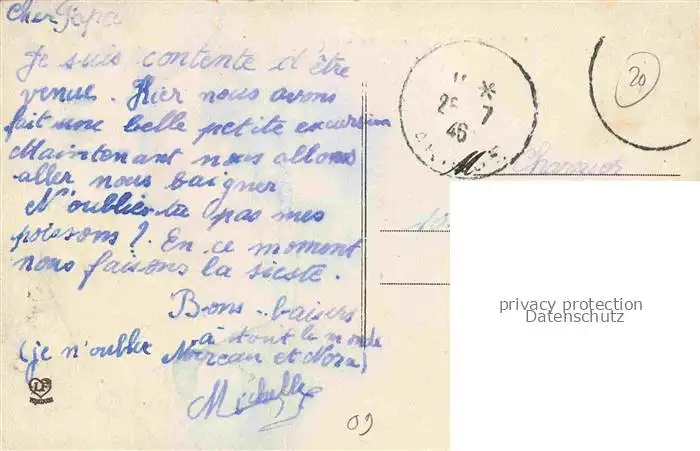 Cher Papa
Je suis contente d'être
venue. Hier nous avons
fait une belle petite excursion
Maintenant nous allons
aller nous baigner
N'oublies-tu pas mes
poissons? En ce moment
nous faisons la sieste.
Bons baisers
à tout le monde
(je n'oublie et Nora)
Michelle
20
25 7
46
M
privacy protection
Datenschutz
09